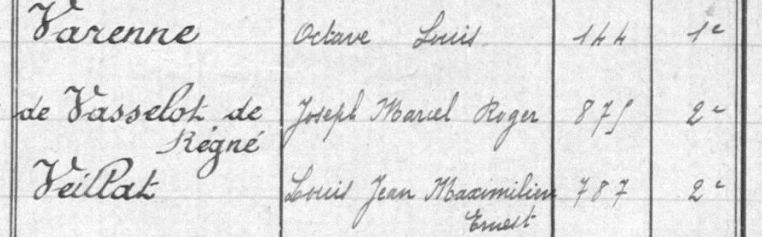 Varenne Octave Louis 144 1e
de Vasselot de Joseph Marcel Roger 875 2e
Régné
Veillat Louis Jean Maximilien 787 2e
Ernest